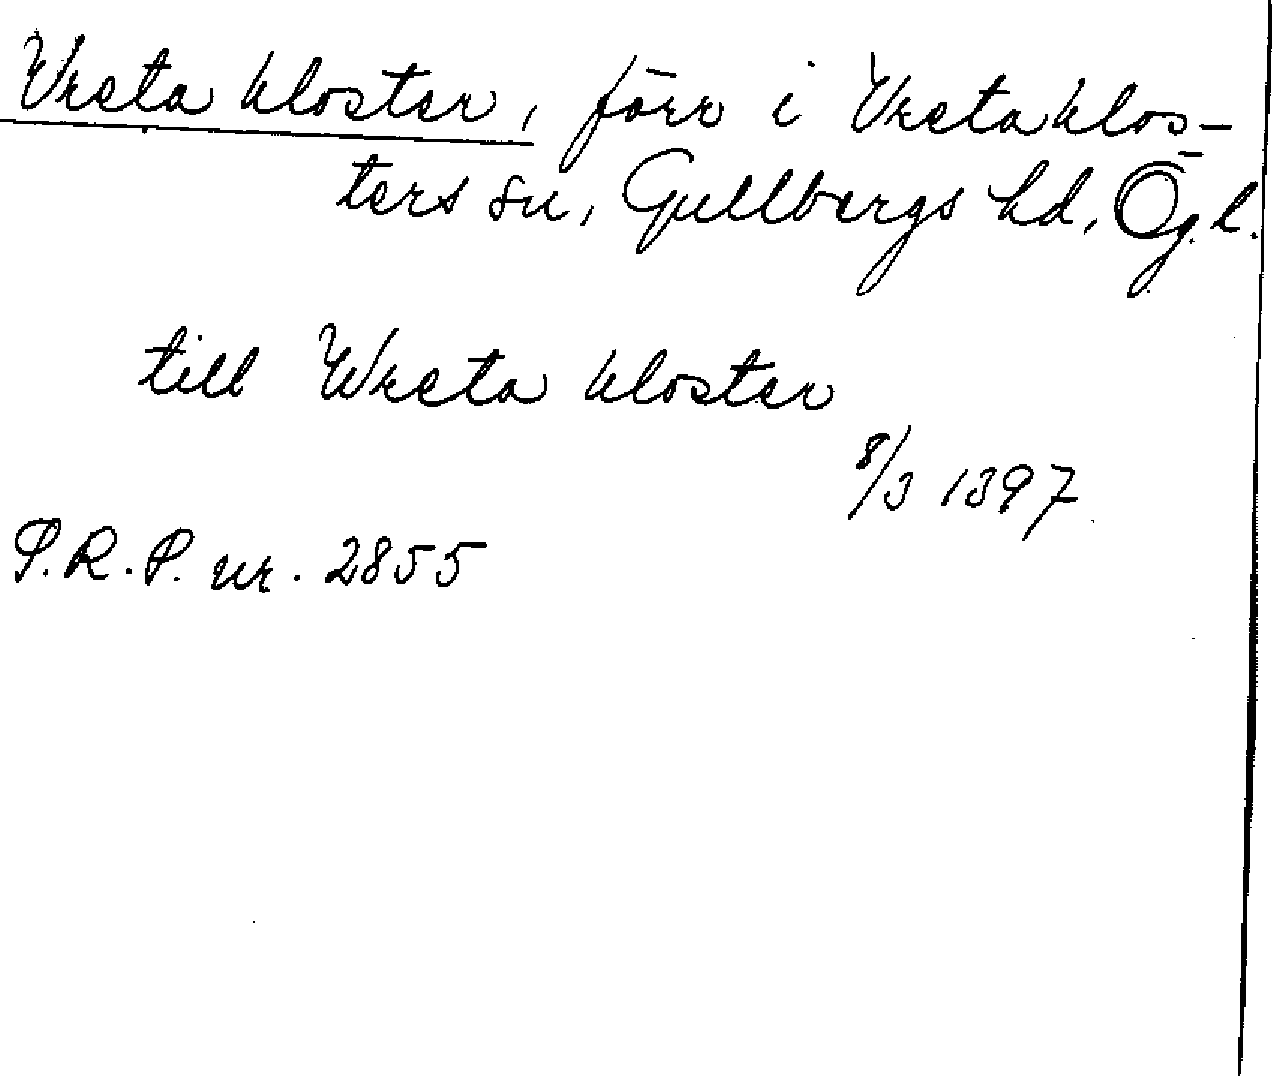 Vreta kloster, förr i Vreta klos-
ters sn, Gullbergs hd, Ög.l.
till Wreta kloster
8/3 1397
S.R.P. nr. 2855